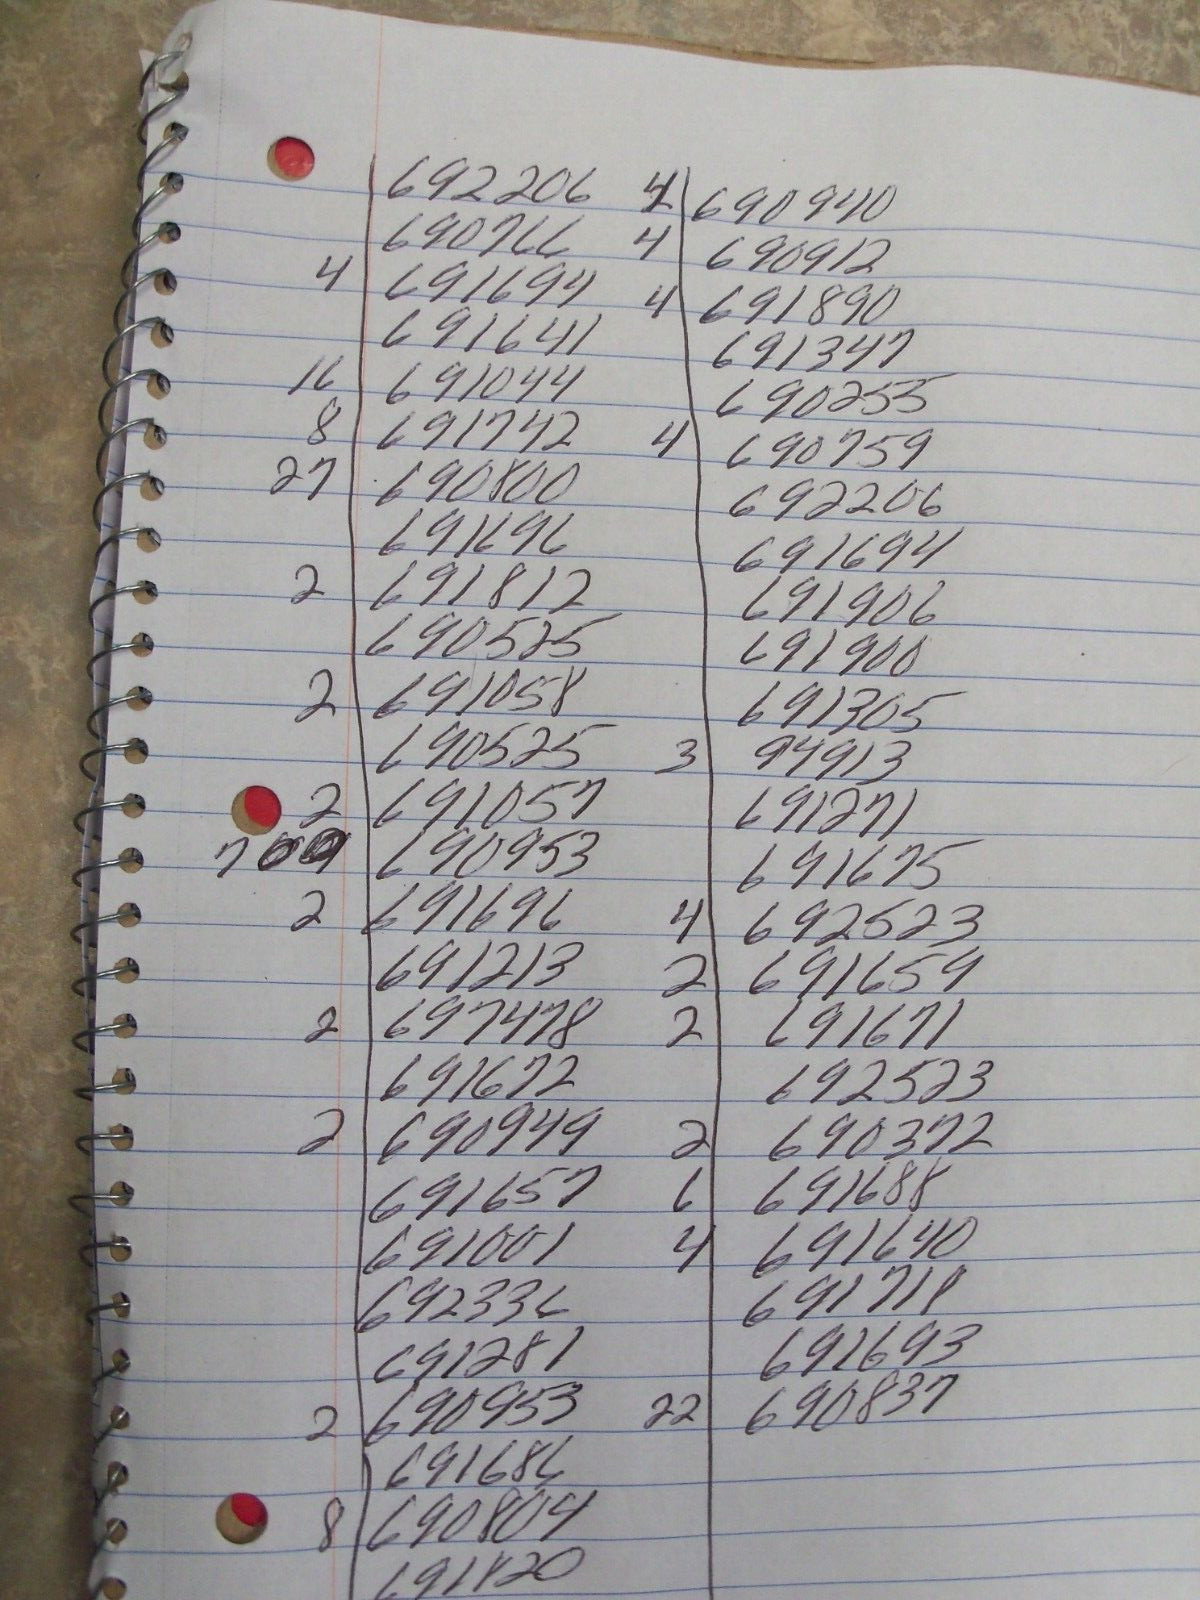 692206
690766
4 691694
691641
16 691044
8 691742
27 690800
691696
2 691812
690525
2 691058
690525
2 691057
690953
2 691696
691213
2 697478
691672
2 690949
691657
691001
692336
691281
2 690953
691686
8 690804
691820
690940
4 690912
4 691890
691347
690255
4 690759
692206
691694
691906
691900
691305
3 94913
691271
691675
4 692523
2 691659
2 691671
692523
2 690372
6 691688
4 691640
691718
691693
22 690837